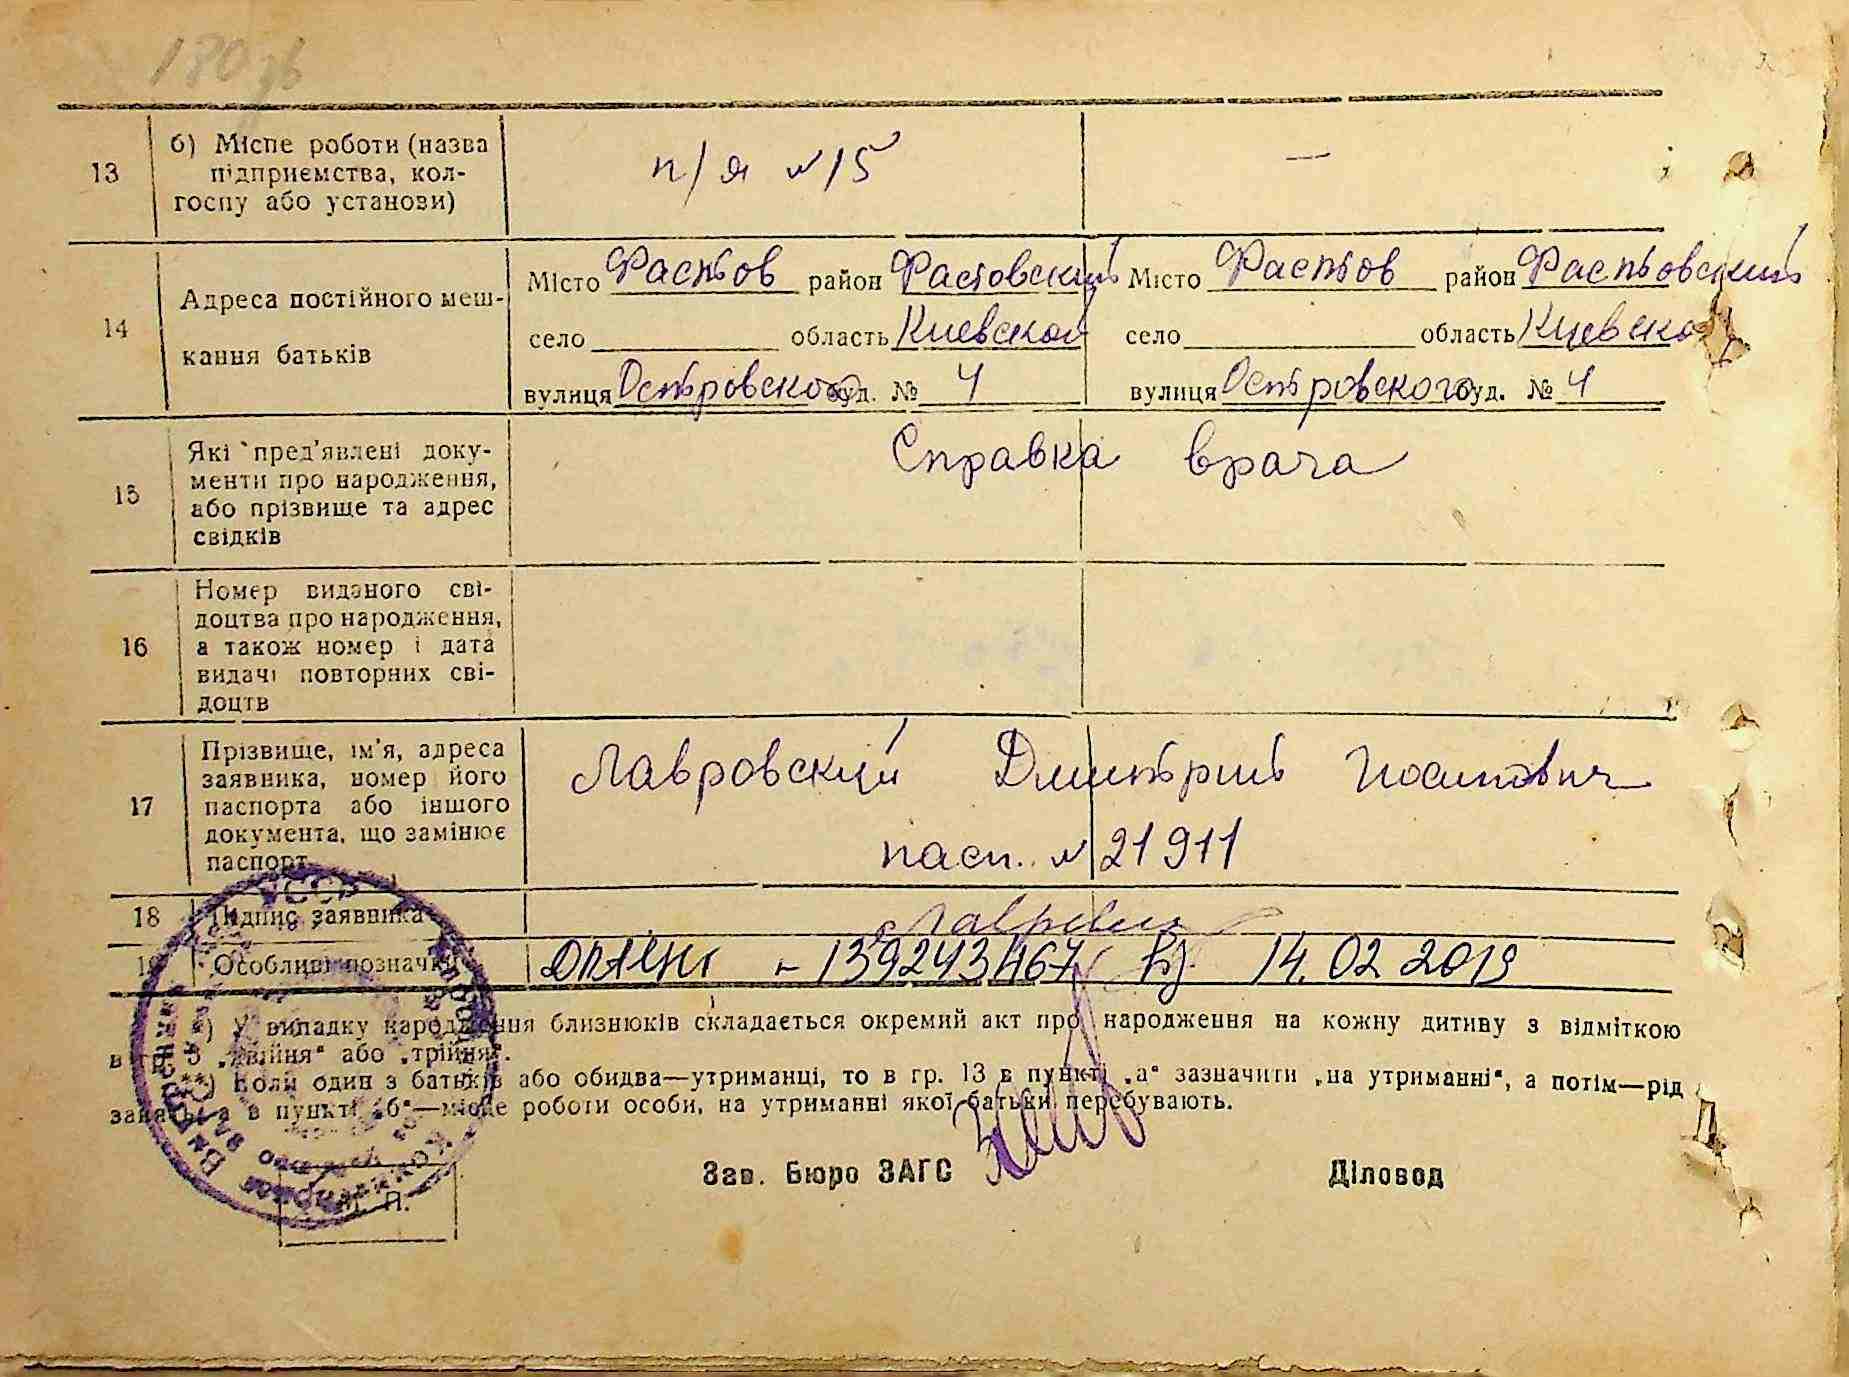 180 зв
13 б) Місце роботи (назва підприємства, колгоспу або установи) п/я №15 —
14 Адреса постійного мешкання батьків
Місто Фастов район Фастовский Місто Фастов район Фастовский
село область Киевской село область Киевско
вулиця Островского буд. № 4 вулиця Островского буд. № 4
15 Які пред'явлені документи про народження, або прізвище та адрес свідків Справка врача
16 Номер виданого свідоцтва про народження, а також номер і дата видачі повторних свідоцтв
17 Прізвище, ім'я, адреса заявника, номер його паспорта або іншого документа, що замінює паспорт
Лавровский Дмитрий Иосипович
пасп. № 21911
18 Підпис заявника
19 Особливі позначки 139243467 14.02 2019
*) У випадку народження близнюків складається окремий акт про народження на кожну дитину з відміткою
в гр. 3 „двійня“ або „трійня“.
**) Коли один з батьків або обидва—утриманці, то в гр. 13 в пункті „а“ зазначити „на утриманні“, а потім—рід
занять, а в пункті „б“—місце роботи особи, на утриманні якої батьки перебувають.
Зав. Бюро ЗАГС Діловод
М. П.
УССР